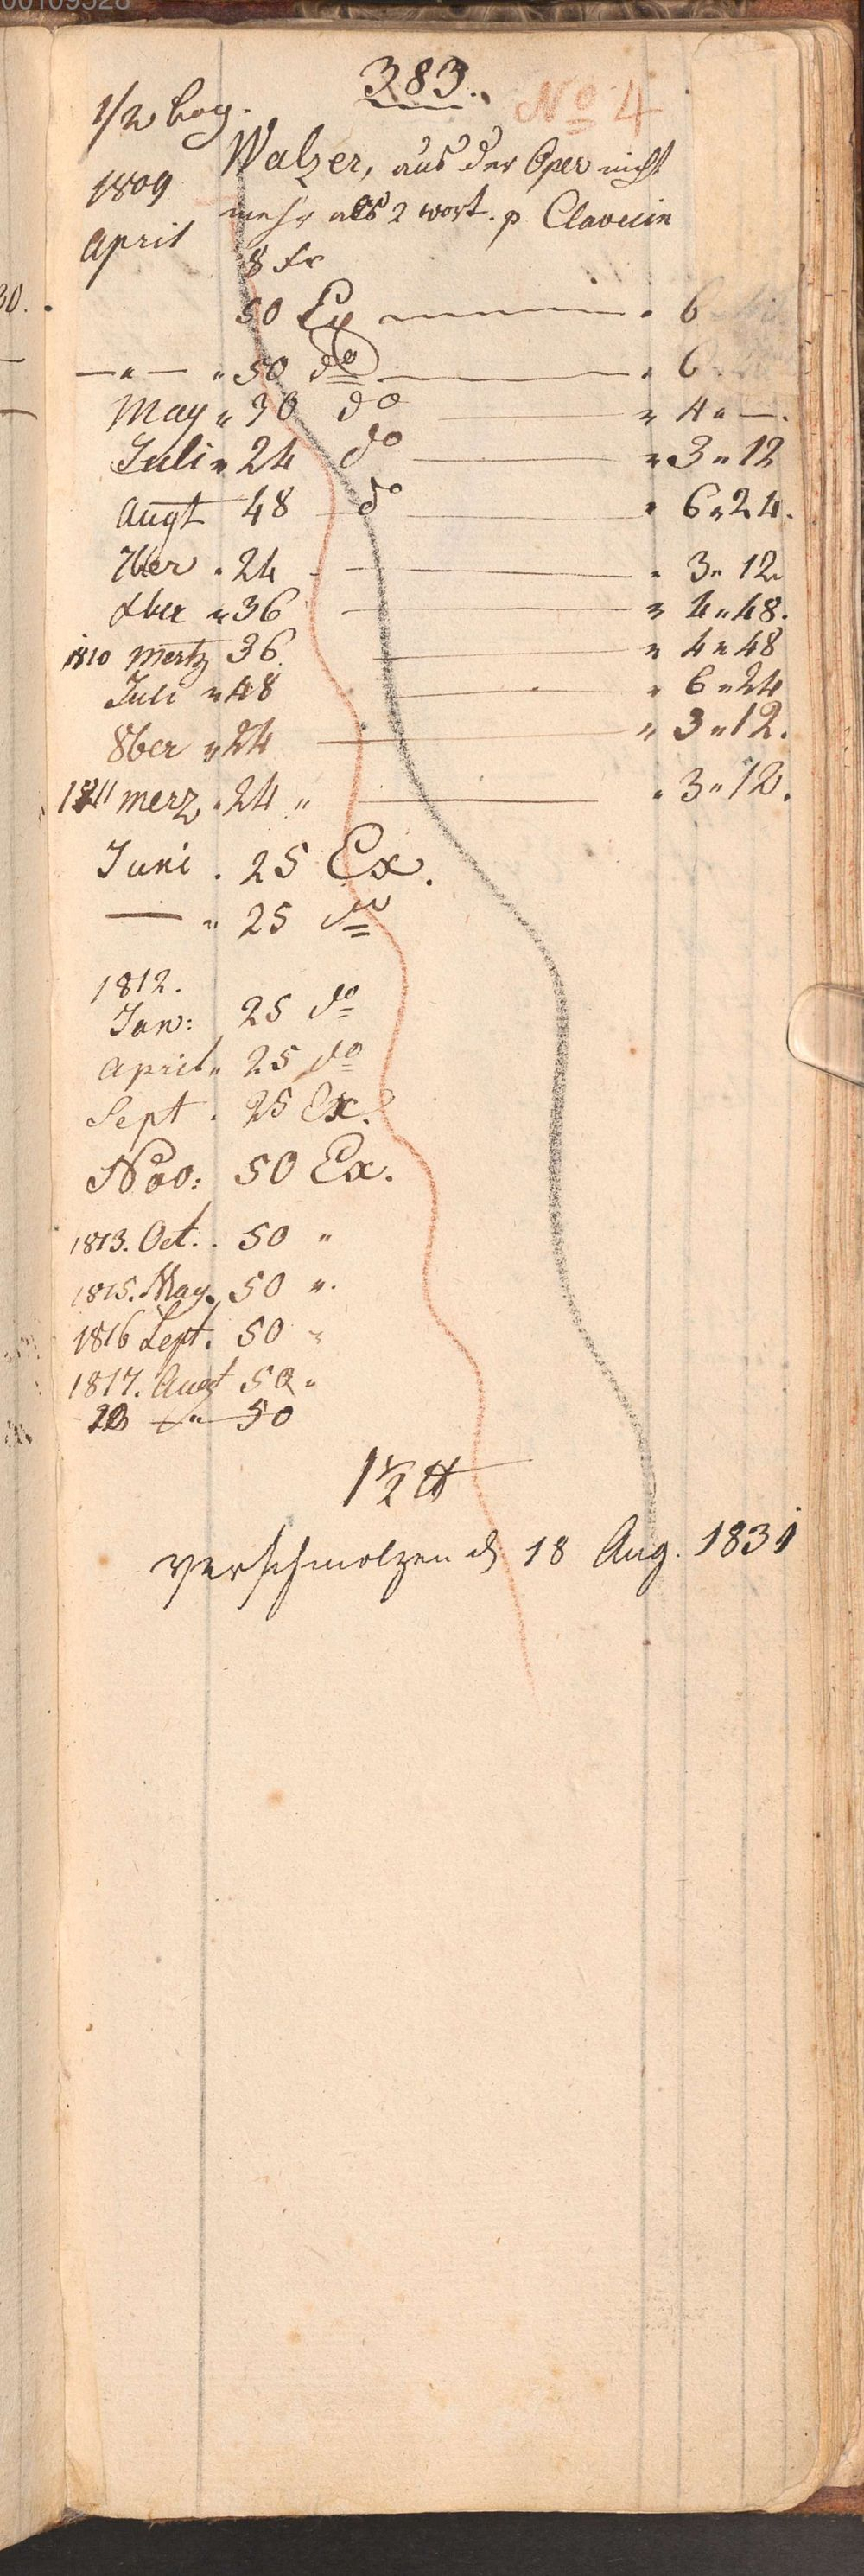 00109528
383.
No 4
1/2 bog.
Walzer, aus der Oper nicht
1809
mehr als 2 wort. p Clavecin
April
8 xr
50 Ex " 6
— " — " 50 do " 6
May " 30 do " 4 " —.
Juli " 24 do " 3 " 12
Augt 48 do " 6 " 24.
7ber " 24 " 3 " 12
xber " 36 " 4 " 48.
1810 Mertz 36. " 4 " 48
Juli " 48 " 6 " 24
8ber " 24 " 3 " 12.
1811 merz " 24 " " 3 " 12.
Juni . 25 Ex.
— " 25 do
1812.
Jan: 25 do
April " 25 do
Sept . 25 Ex.
Nov: 50 Ex.
1813. Oct. . 50 "
1815. May. 50 ".
1816 Sept. 50 "
1817. Augt 50 "
" 50
1 1/2 ℔
verschmolzen d 18 Aug. 1831